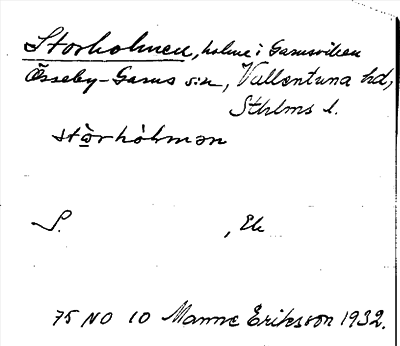 Storholmen, holme i Garnsviken
Össeby-Garns sn, Vallentuna hd,
Sthlms l.
stòrhòlmən
S. , Ek
75 NO 10 Manne Eriksson 1932.